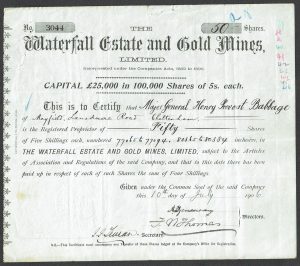 No. 3044 THE 50 Shares.
Waterfall Estate and Gold Mines,
LIMITED.
Incorporated under the Companies Acts, 1862 to 1890.
CAPITAL £25,000 in 100,000 Shares of 5s. each.
This is to Certify that Major General Henry Prevost Babbage
of Mayfield, Lansdowne Road Cheltenham
is the Registered Proprietor of Fifty Shares
of Five Shillings each, numbered inclusive, in
THE WATERFALL ESTATE AND GOLD MINES, LIMITED, subject to the Articles
of Association and Regulations of the said Company, and that to this date there has been paid
up in respect of each of such Shares the sum of Four Shillings
Given under the Common Seal of the said Company
this 10th day of July 1906
Thomas Directors.
Secretary
N.B.—This Certificate must accompany any Transfer of these Shares lodged at the Company's Office for Registration.